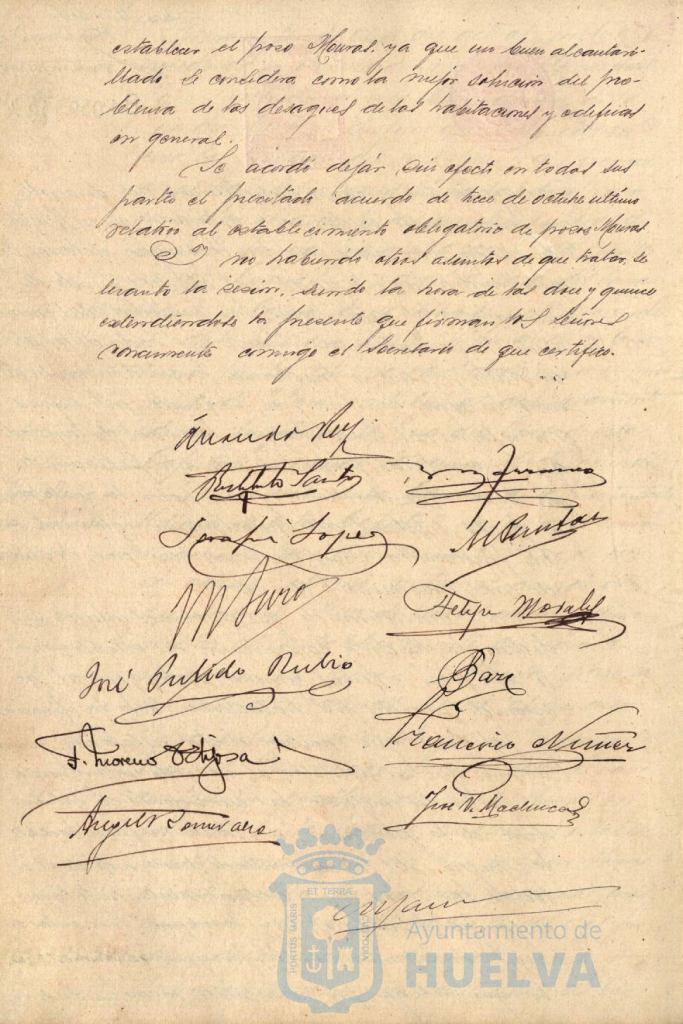 establecer el pozo Mouras, ya que un buen alcantari-
llado se considera como la mejor solución del pro-
blema de los desagües de las habitaciones y edificios
en general.
Se acordó dejar sin efecto en todas sus
partes el precitado acuerdo de trece de octubre último
relativo al establecimiento obligatorio de pozos Mouras.
Y no habiendo otros asuntos de que tratar, se
levantó la sesión, siendo la hora de las doce y quince
extendiéndose la presente que firman los Señores
conmigo el Secretario de que certifico.
Rey
Santos
Serafín López
José Pulido Rubio
Felipe Morales
F. Moreno Ortega
Francisco Núñez
José N. Machuca
Angel
ET TERRÆ
PORTUS MARIS
CUSTODIA
Ayuntamiento de
HUELVA